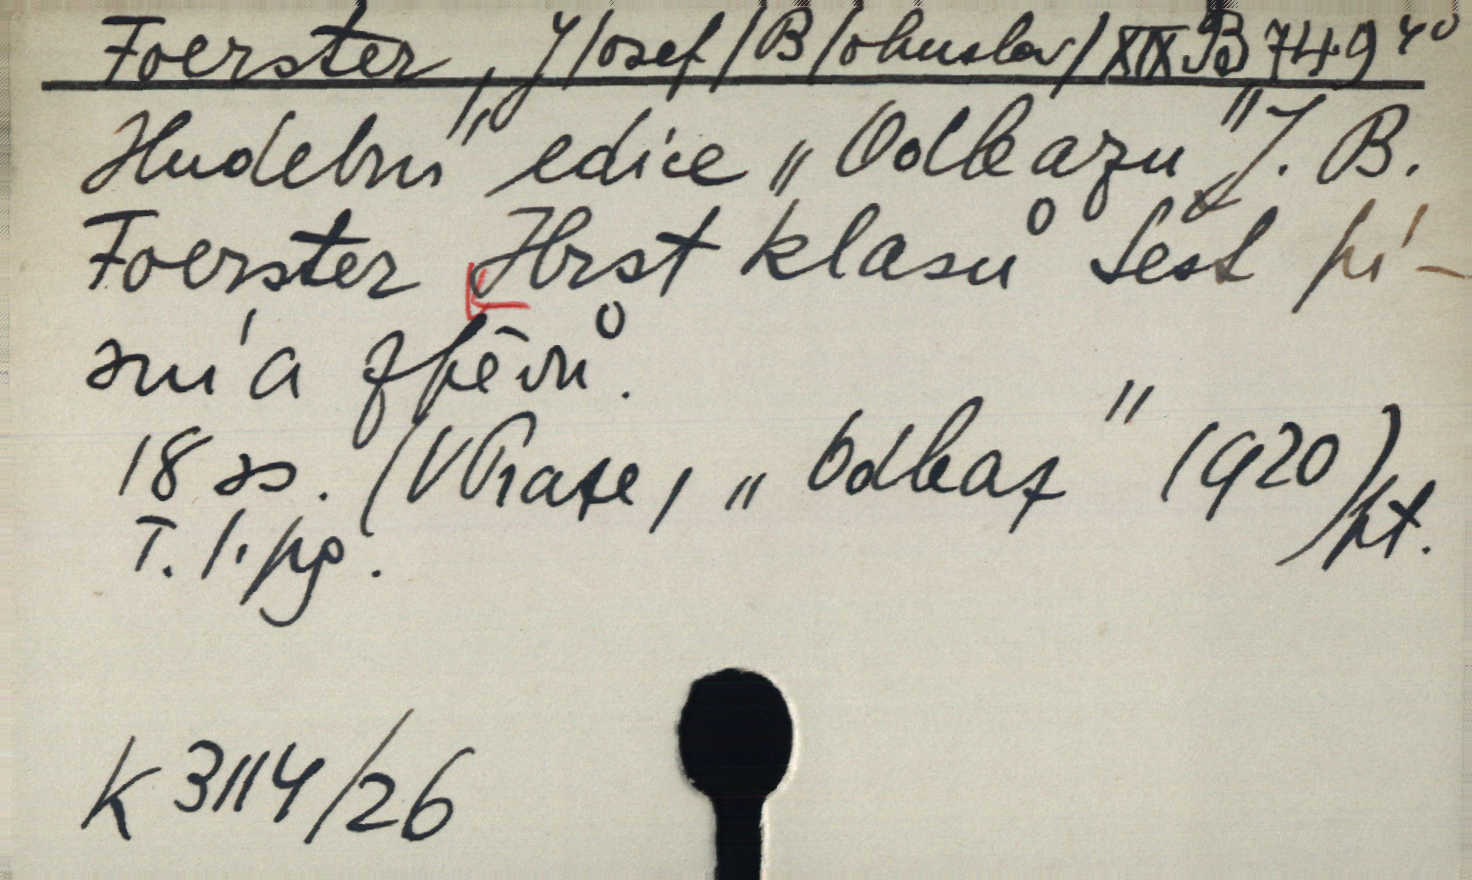 Foerster, J/osef/B/ohuslav/ XIX B 749 4°
Hudební edice „Odkazu" J. B.
Foerster Hrst klasů Šest pí-
sní a zpěvů.
18 ss. (V Praze, „Odkaz" 1920) pt.
T. 1. pg.
K 3114/26